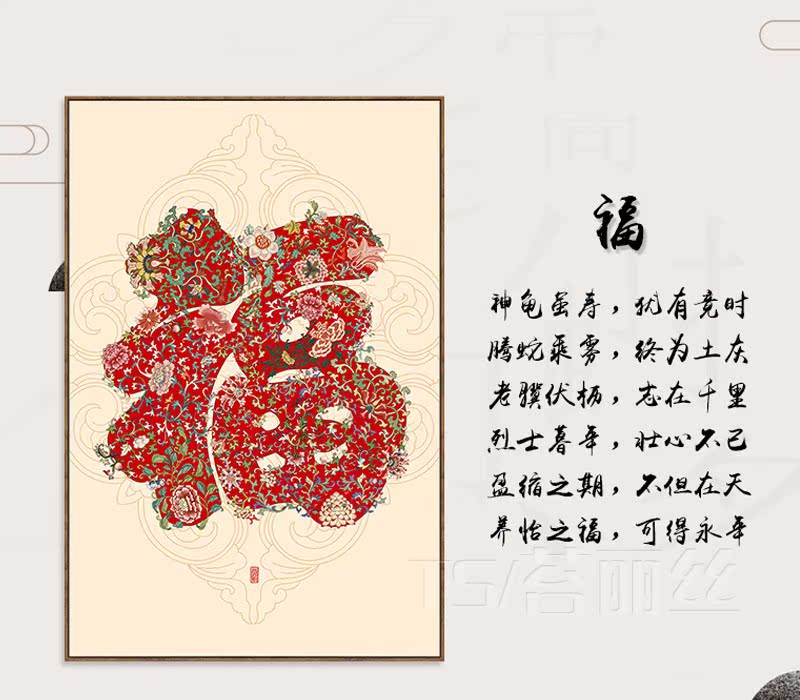 福
福
神龟虽寿，犹有竟时
腾蛇乘雾，终为土灰
老骥伏枥，志在千里
烈士暮年，壮心不已
盈缩之期，不但在天
养怡之福，可得永年
TS/荅丽丝